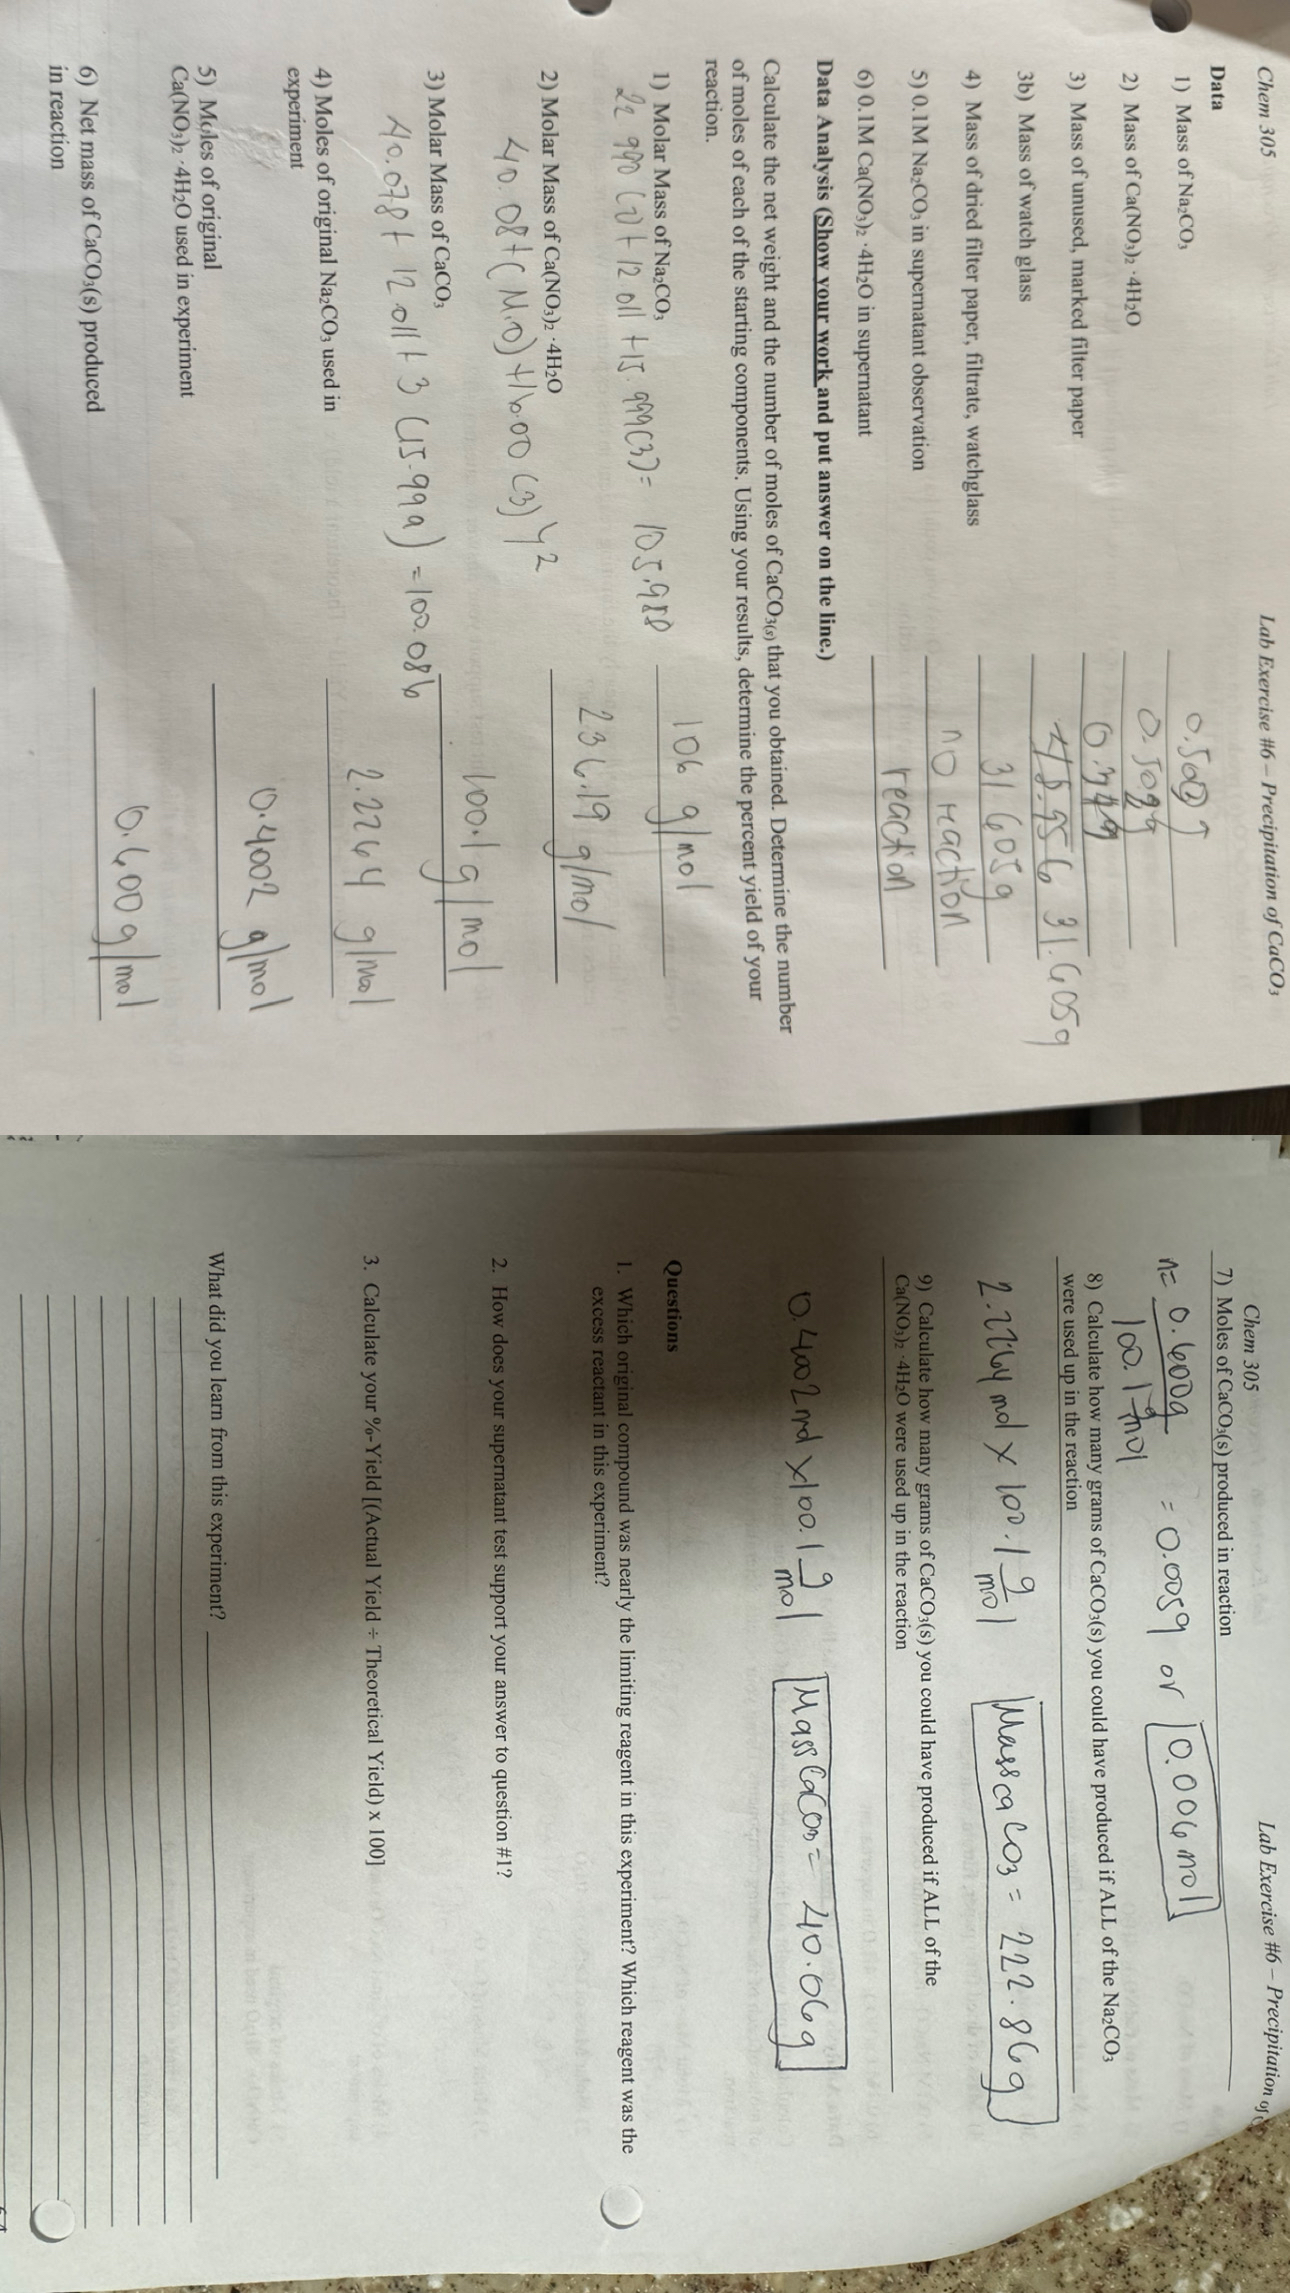 Chem 305 Lab Exercise #6 – Precipitation of CaCO₃
Data
1) Mass of Na₂CO₃ 0.500 g
2) Mass of Ca(NO₃)₂ ·4H₂O 0.50g g
3) Mass of unused, marked filter paper
3b) Mass of watch glass 31.605g
4) Mass of dried filter paper, filtrate, watchglass 31 605g
5) 0.1M Na₂CO₃ in supernatant observation no reaction
6) 0.1M Ca(NO₃)₂ ·4H₂O in supernatant reaction
Data Analysis (Show your work and put answer on the line.)
Calculate the net weight and the number of moles of CaCO₃(s) that you obtained. Determine the number
of moles of each of the starting components. Using your results, determine the percent yield of your
reaction.
1) Molar Mass of Na₂CO₃ 106 g/mol
22 990 (2) + 12 011 + 15.999(3) = 105.988
2) Molar Mass of Ca(NO₃)₂ ·4H₂O 236.19 g/mol
40.08 + (14.0) + 16.00 (3) 42
3) Molar Mass of CaCO₃ 100.1 g/mol
40.078 + 12 011 + 3 (15.999) = 100.086
4) Moles of original Na₂CO₃ used in 2.2264 g/mol
experiment
5) Moles of original 0.4002 g/mol
Ca(NO₃)₂ ·4H₂O used in experiment
6) Net mass of CaCO₃(s) produced 0.600 g/mol
in reaction
Chem 305 Lab Exercise #6 – Precipitation of
7) Moles of CaCO₃(s) produced in reaction
n= 0.600g / 100.1 g/mol = 0.0059 or 0.006 mol
8) Calculate how many grams of CaCO₃(s) you could have produced if ALL of the Na₂CO₃
were used up in the reaction
2.2264 mol x 100.1 g/mol Mass caco3 = 222.86g
9) Calculate how many grams of CaCO₃(s) you could have produced if ALL of the
Ca(NO₃)₂ ·4H₂O were used up in the reaction
0.4002 mol x 100.1 g/mol Mass CaCo3 = 40.06g
Questions
1. Which original compound was nearly the limiting reagent in this experiment? Which reagent was the
excess reactant in this experiment?
2. How does your supernatant test support your answer to question #1?
3. Calculate your %-Yield [(Actual Yield ÷ Theoretical Yield) x 100]
What did you learn from this experiment?